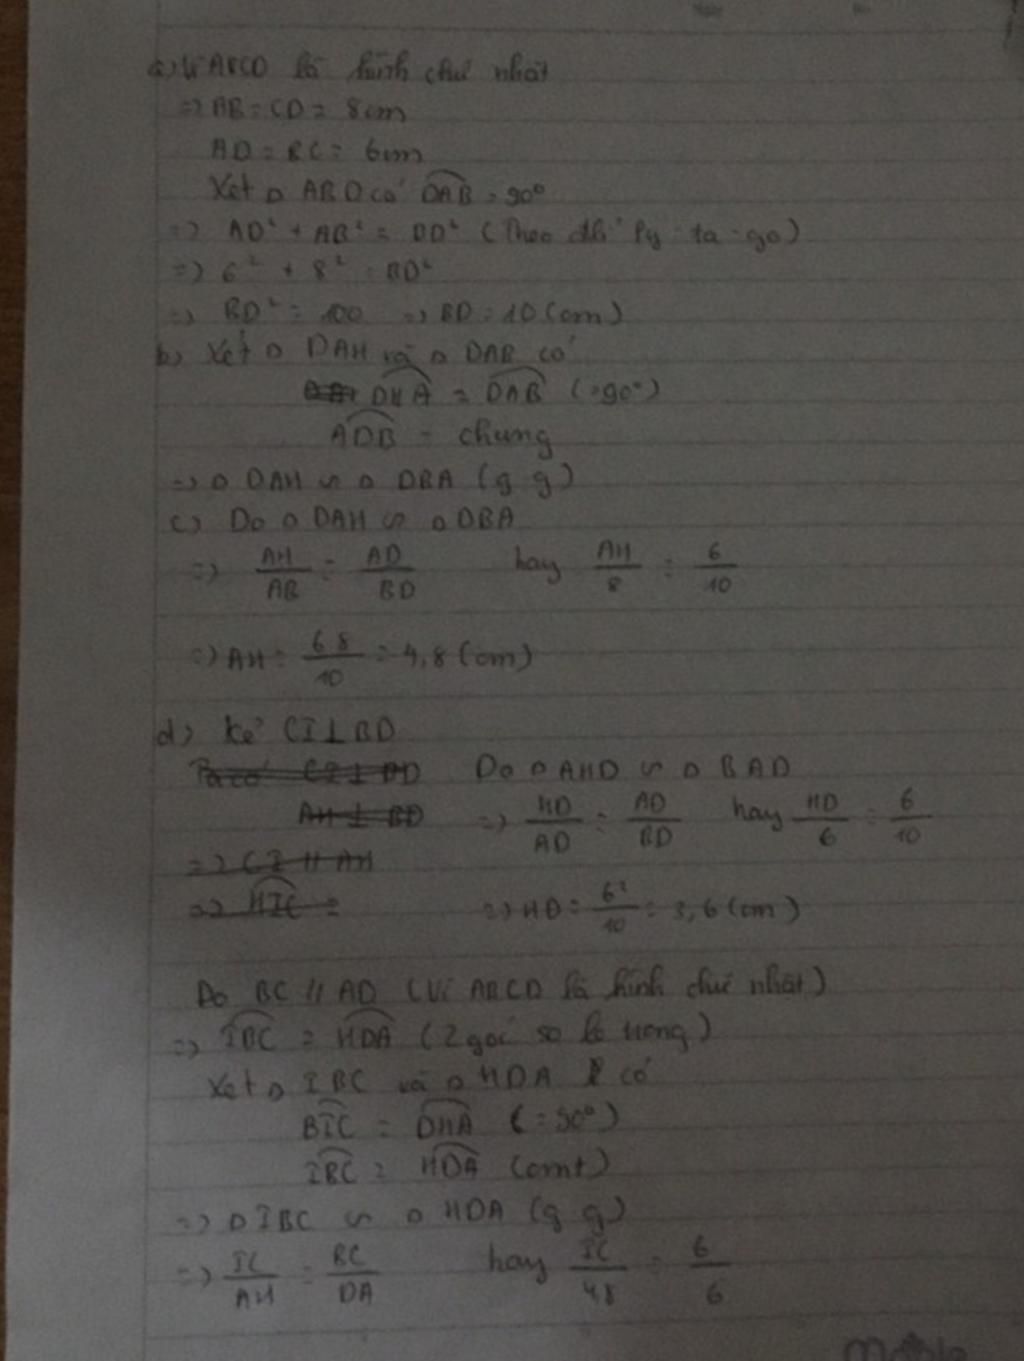 a) Vì ABCD là hình chữ nhật
=> AB = CD = 8cm
AD = BC = 6cm
Xét Δ ABD có DAB = 90°
=> AD² + AB² = BD² (Theo đlí Py-ta-go)
=> 6² + 8² = BD²
=> BD² = 100 => BD = 10 (cm)
b) Xét Δ DAH và Δ DAB có
DHA = DAB (=90°)
ADB - chung
=> Δ DAH ∽ Δ DBA (g.g)
c) Do Δ DAH ∽ Δ DBA
=> AH/AB = AD/BD hay AH/8 = 6/10
=> AH = 6.8/10 = 4,8 (cm)
d) Kẻ CI ⊥ BD
Ta có CI ⊥ BD Do Δ AHD ∽ Δ BAD
AH ⊥ BD => HD/AD = AD/BD hay HD/6 = 6/10
=> CI // AH
=> HIC = => HD = 6²/10 = 3,6 (cm)
Do BC // AD (Vì ABCD là hình chữ nhật)
=> IBC = HDA (2 góc so le trong)
Xét Δ IBC và Δ HDA có
BIC = DHA (=90°)
IBC = HDA (cmt)
=> Δ IBC ∽ Δ HDA (g.g)
=> IC/AH = BC/DA hay IC/4,8 = 6/6